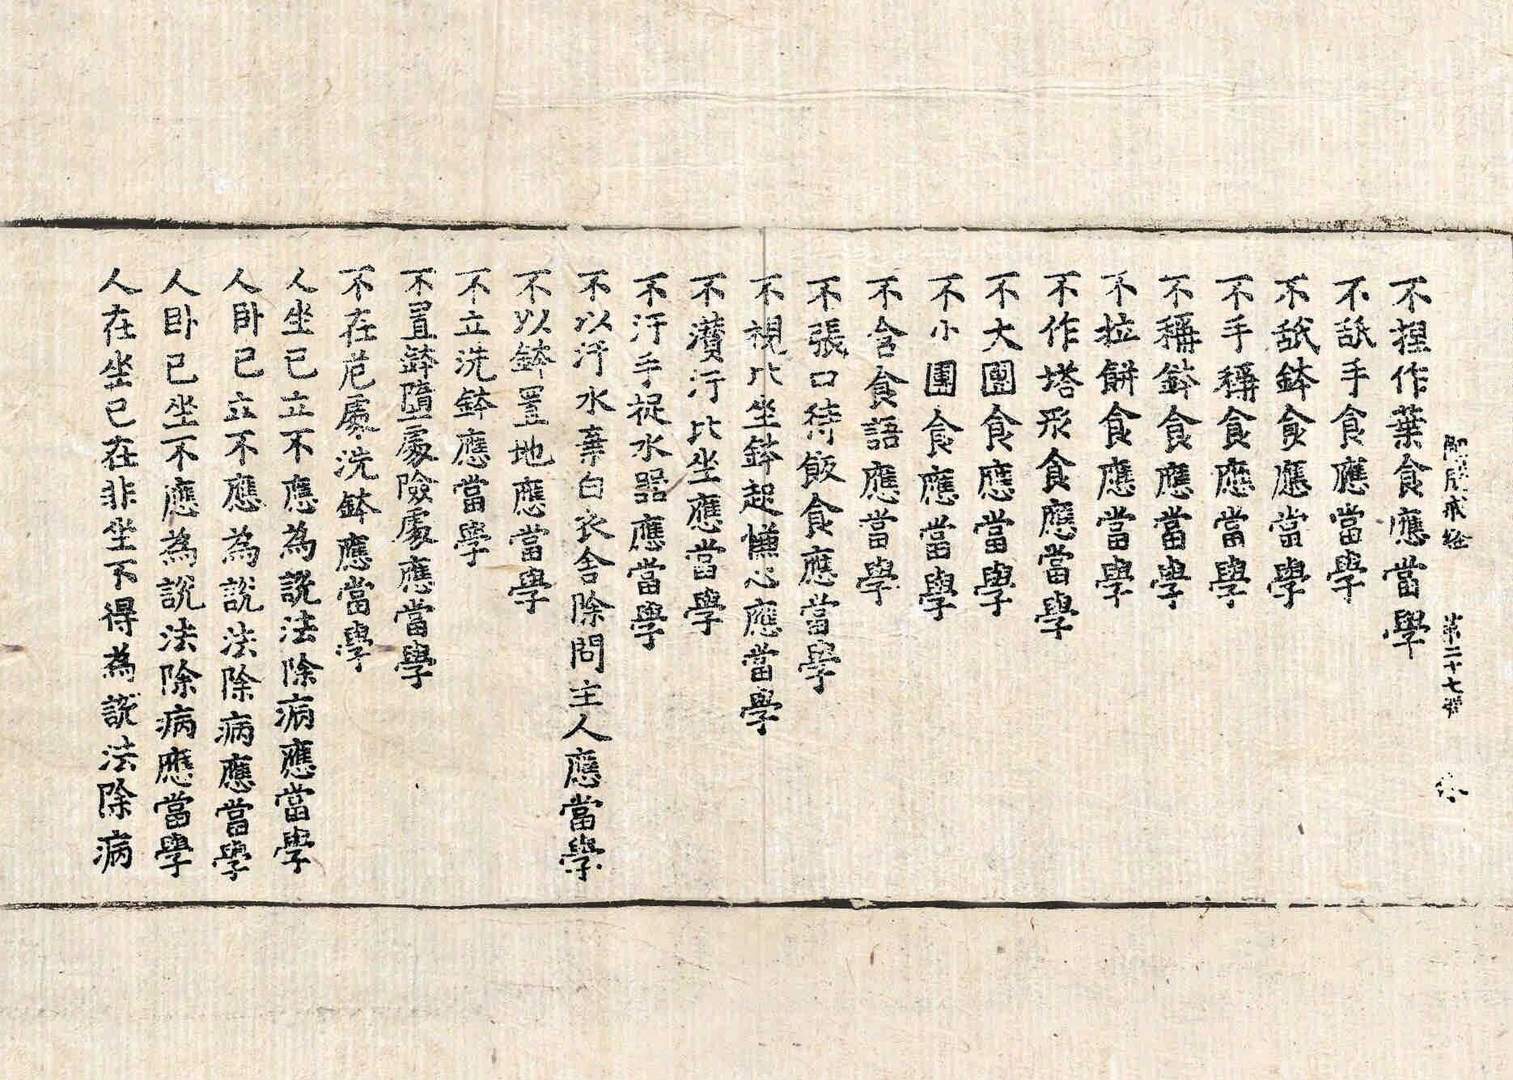 解脫戒經 第二十七張 木
不捏作葉食應當學
不舐手食應當學
不舐鉢食應當學
不手稱食應當學
不稱鉢食應當學
不拉餅食應當學
不作塔形食應當學
不大團食應當學
不小團食應當學
不含食語應當學
不張口待飯食應當學
不視比坐鉢起慊心應當學
不濺汙比坐應當學
不汙手捉水器應當學
不以汙水棄白衣舍除問主人應當學
不以鉢置地應當學
不立洗鉢應當學
不置鉢墮處險處應當學
不在危處洗鉢應當學
人坐已立不應為說法除病應當學
人卧已立不應為說法除病應當學
人卧已坐不應為說法除病應當學
人在坐已在非坐不得為說法除病